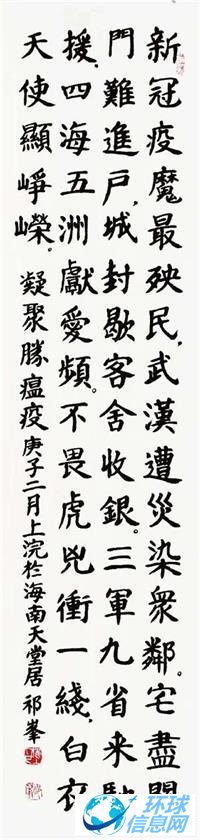 新冠疫魔最殃民,武漢遭災染衆鄰。宅盡
門難進戶,城封歇客舍收銀。三軍九省来馳
援,四海五洲獻愛頻。不畏虎兇衝一綫,白衣
天使顯崢嶸。凝聚勝瘟疫庚子二月上浣於海南天堂居 祁峯
环球信息网